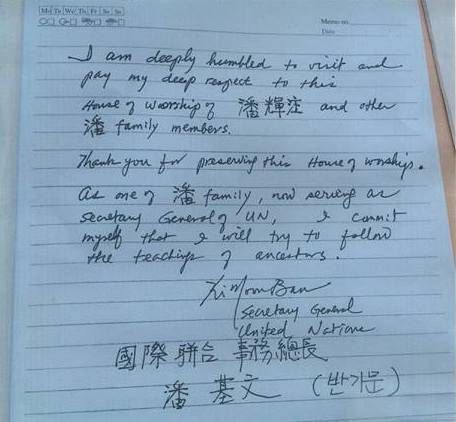 Mo Tu We Th Fr Sa Su
Memo no.
Date
I am deeply humbled to visit and
pay my deep respect to this
House of worship of 潘輝 and other
潘 family members.
Thank you for preserving this House of worship.
As one of 潘 family, now serving as
Secretary General of UN, I commit
myself that I will try to follow
the teachings of ancestors.
Ki Moon Ban
Secretary General
United Nations
國際聯合 事務總長
潘 基文 (반기문)